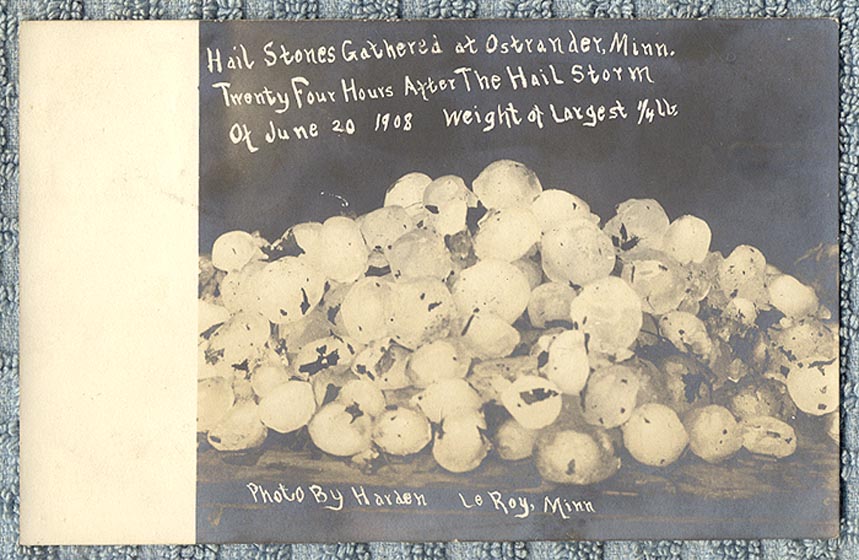 Hail Stones Gathered at Ostrander, Minn.
Twenty Four Hours After The Hail Storm
Of June 20 1908 Weight of Largest 1/4 lb.
Photo By Harden Le Roy, Minn